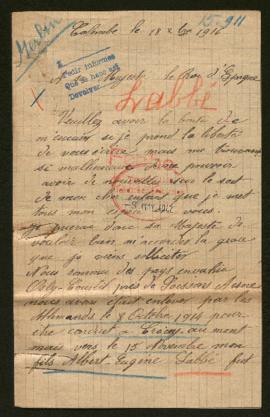 15.911
Berlin
Colombe le 18 Xbre 1916
A sa Majesté le Roi d'Espagne
Pedir informes
Que se hace así
Devolver
Labbé
Veuillez avoir la bonté de
m'excuser si je prend la liberté
de vous écrire mais me trouvant
si malheureuse sans pouvoir
avoir de nouvelles sur le sort
de mon cher enfant que je met
tous mon espoir en vous.
Je
donc sa Majesté de
vouloir bien m'accorder la grace
que je viens solliciter
Nous sommes des pays envahis
près de Soissons Aisne
nous avons était enlever par les
Allemands le 8 Octobre 1914 pour
être conduit à Crécy au mont
mais vers le 15 Novembre mon
fils Albert Eugène Labbé fut